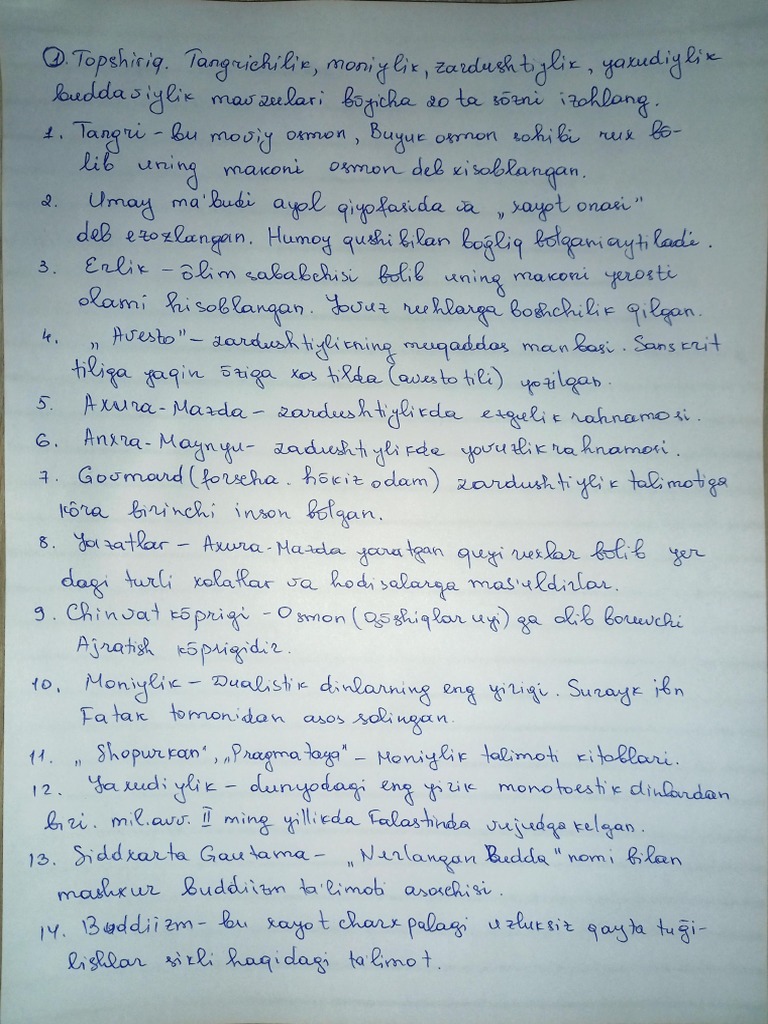 ① Topshiriq. Tangrichilik, moniylik, zardushtiylik, yaxudiylik
buddaviylik mavzulari bo̅yicha 20 ta so̅zni izohlang.
1. Tangri – bu moviy osmon, Buyuk osmon sohibi rux bo̅-
lib uning makoni osmon deb xisoblangan.
2. Umay ma'budi ayol qiyofasida va „xayot onasi"
deb ezozlangan. Humoy qushi bilan bog̅liq bo̅lgani aytiladi.
3. Erlik – o̅lim sababchisi bo̅lib uning makoni yerosti
olami hisoblangan. Yovuz ruhlarga boshchilik qilgan.
4. „Avesto" – zardushtiylikning muqaddas manbasi. Sanskrit
tiliga yaqin o̅ziga xos tilda (avesto tili) yozilgan.
5. Axura-Mazda – zardushtiylikda ezgulik rahnamosi.
6. Anxra-Maynyu – zadushtiylikda yovuzlik rahnamosi.
7. Govmard (forscha. ho̅kiz odam) zardushtiylik talimotiga
ko̅ra birinchi inson bo̅lgan.
8. Yazatlar – Axura-Mazda yaratgan quyi ruxlar bo̅lib yer
dagi turli xolatlar va hodisalarga mas'uldirlar.
9. Chinvat ko̅prigi – Osmon (Qo̅shiqlar uyi) ga olib boruvchi
Ajratish ko̅prigidir.
10. Moniylik – Dualistik dinlarning eng yirigi. Surayk ibn
Fatak tomonidan asos solingan.
11. „Shopurkan", „Pragmataya" – Moniylik talimoti kitoblari.
12. Yaxudiylik – dunyodagi eng yirik monotoestik dinlardan
biri. mil.avv. II ming yillikda Falastinda vujudga kelgan.
13. Siddxarta Gautama – „Nurlangan Budda" nomi bilan
mashxur buddiizm ta'limoti asoschisi.
14. Buddiizm – bu xayot charxpalagi uzluksiz qayta tug̅i-
lishlar sikli haqidagi ta'limot.